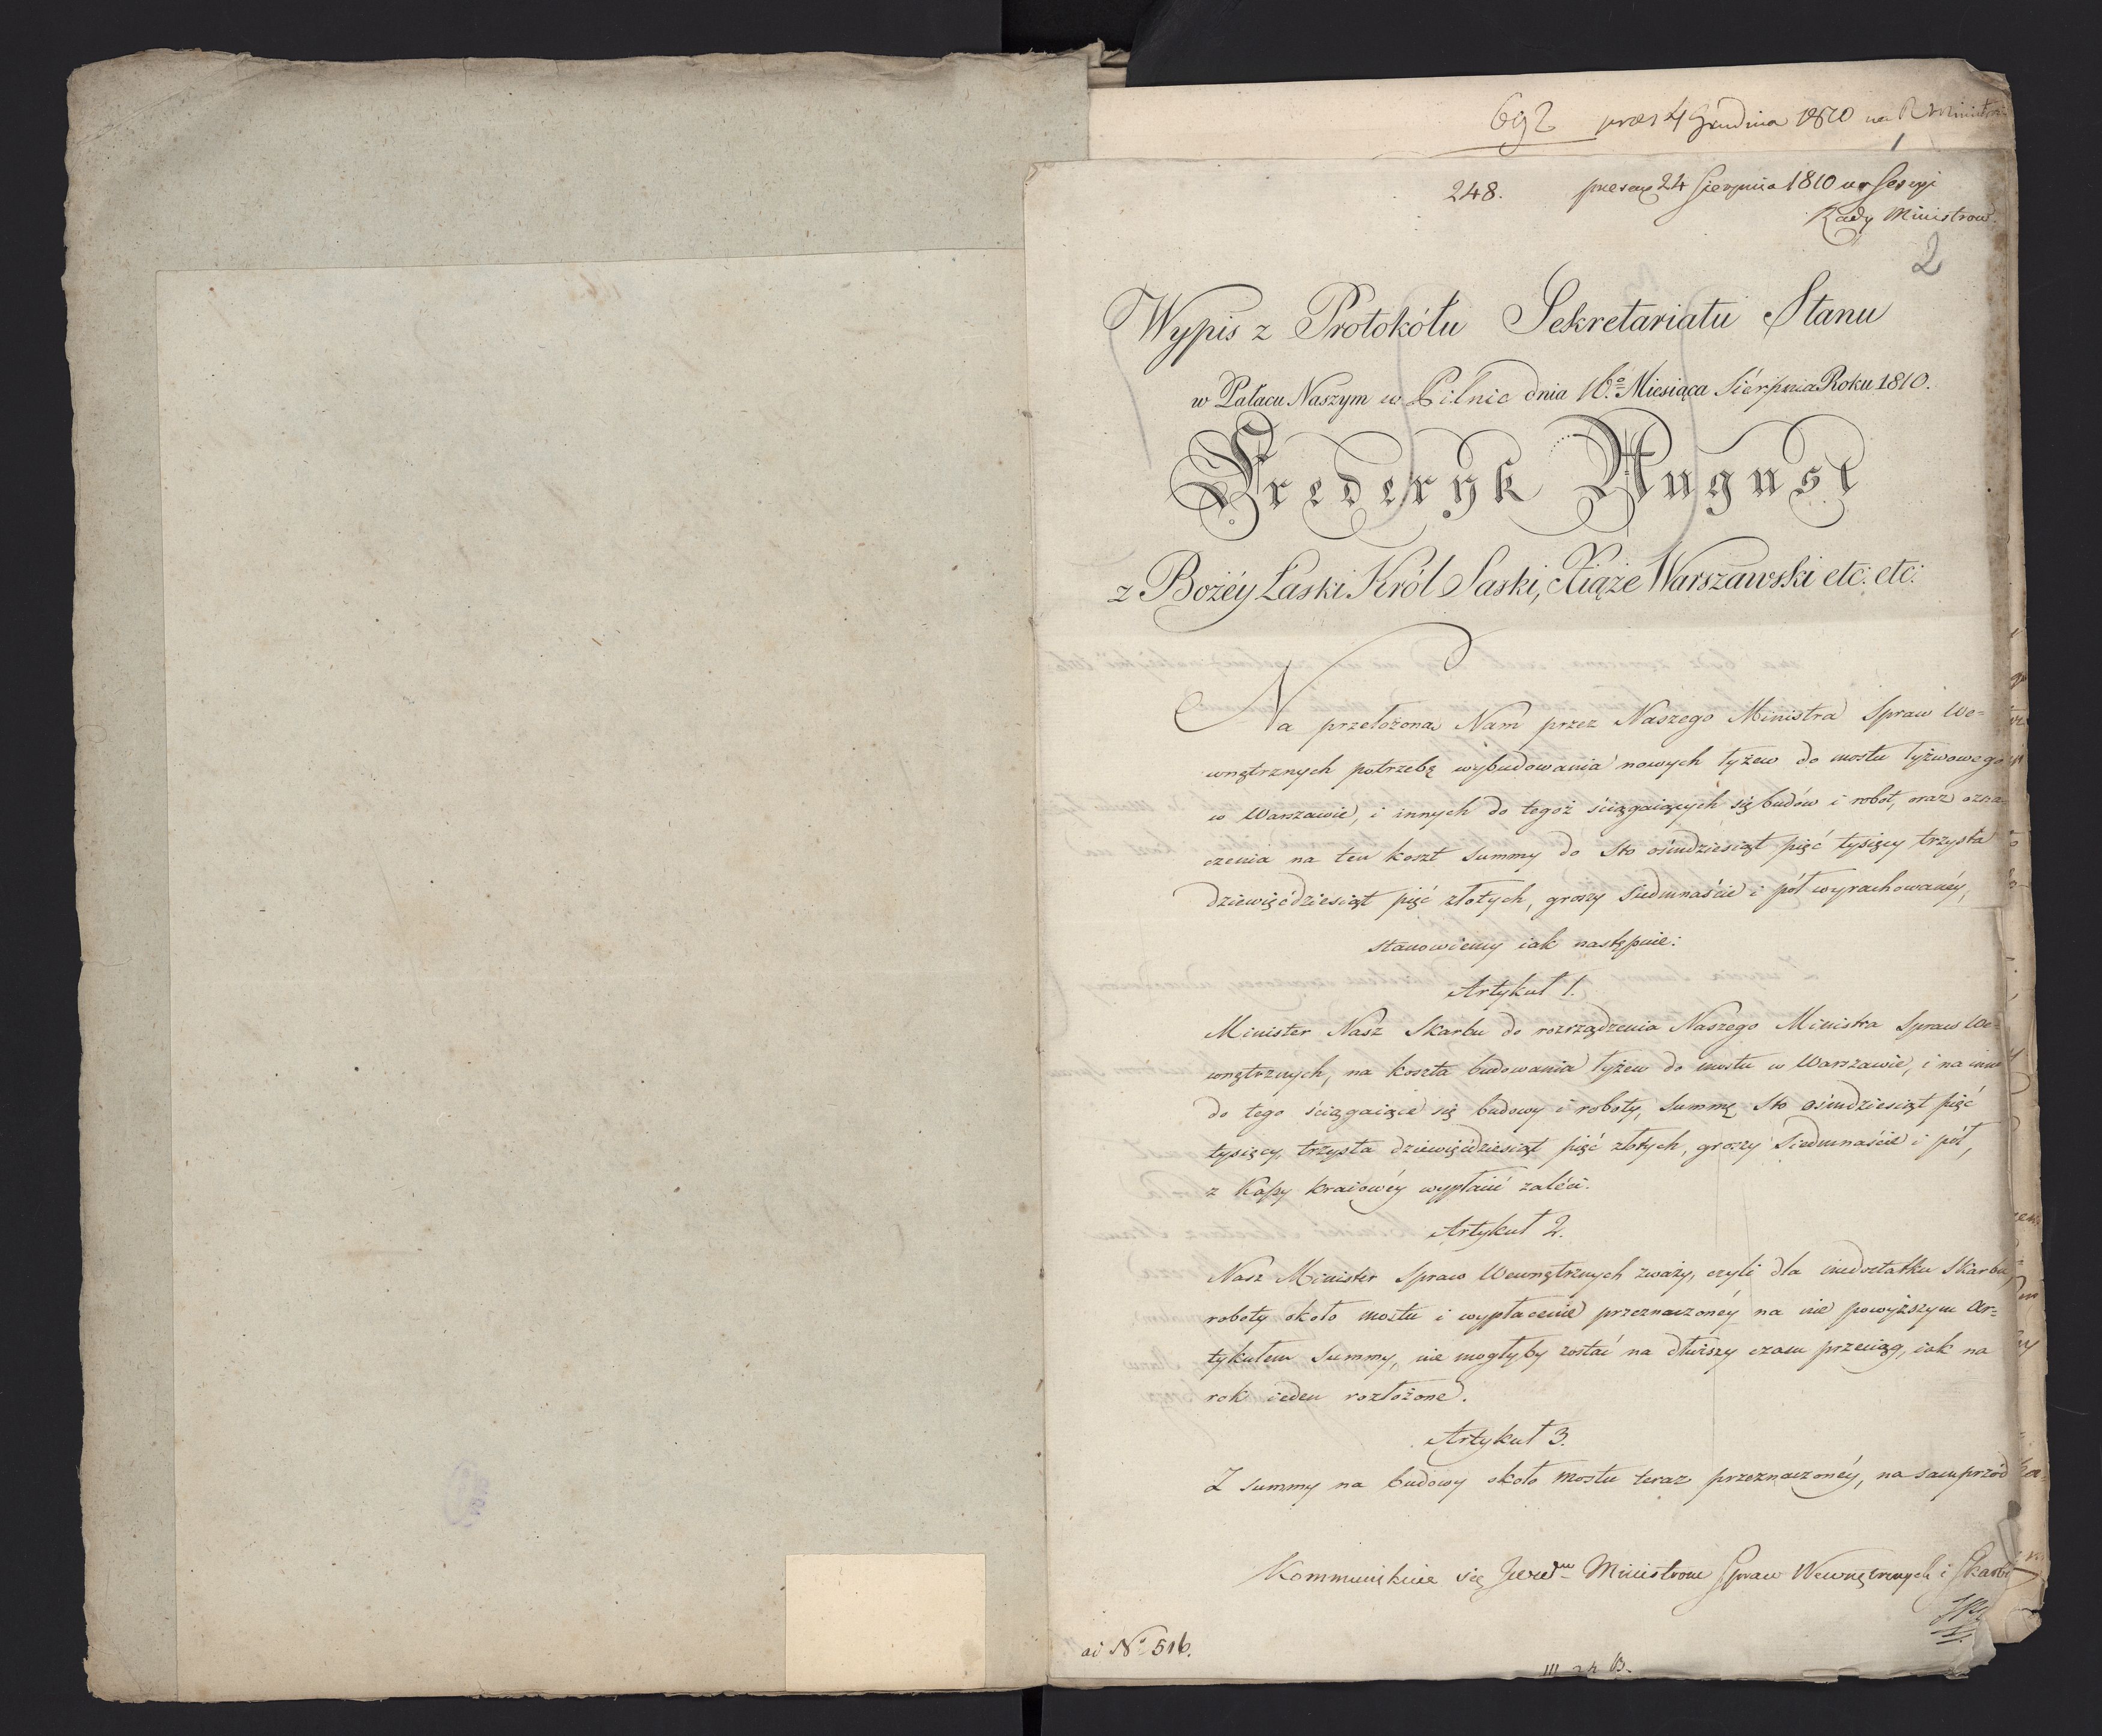 692 praes 4 Grudnia 1810 na R Ministr
1
248. praesen 24 Sierpnia 1810 na Sessyi
Rady Ministrow.
2
Wypis z Protokółu Sekretariatu Stanu
w Pałacu Naszym w Pilnic dnia 16.º Miesiąca Siérpnia Roku 1810.
Frederyk August
z Bożéy Łaski Król Saski, Xiąże Warszawski etc: etc:
Na przełożoną Nam przez Naszego Ministra Spraw We=
wnętrznych potrzebę wybudowania nowych łyżew do mostu łyżwowego
w Warszawie, i innych do tegoż ściągaiących się budów i robót, oraz ozna=
czenia na ten koszt summy do sto ośmdziesiąt pięć tysięcy trzysta
dziewięćdziesiąt pięć złotych, groszy siedmnaście i pół wyrachowanéy,
stanowiemy iak następuie:
Artykuł 1.
Minister Nasz Skarbu do rozrządzenia Naszego Ministra Spraw We=
wnętrznych, na koszta budowania łyżew do mostu w Warszawie, i na inne
do tego ściągaiące się budowy i roboty, summę sto ośmdziesiąt pięć
tysięcy, trzysta dziewięćdziesiąt pięć złotych, groszy siedmnaście i pół,
z Kassy kraiowéy wypłacić zaléci.
Artykuł 2.
Nasz Minister Spraw Wewnętrznych zważy, czyli dla niedostatku Skarbu,
roboty około mostu i wypłacenie przeznaczonéy na nie powyższym Ar=
tykułem summy, nie mogłyby zostać na dłuższy czasu przeciąg, iak na
rok ieden rozłożone.
Artykuł 3.
Z summy na budowy około mostu teraz przeznaczonéy, na samprzód
Kommunikuie się Ministrom Spraw Wewnętrznych i Skarbu
ad Nº 516.
III 24 B.